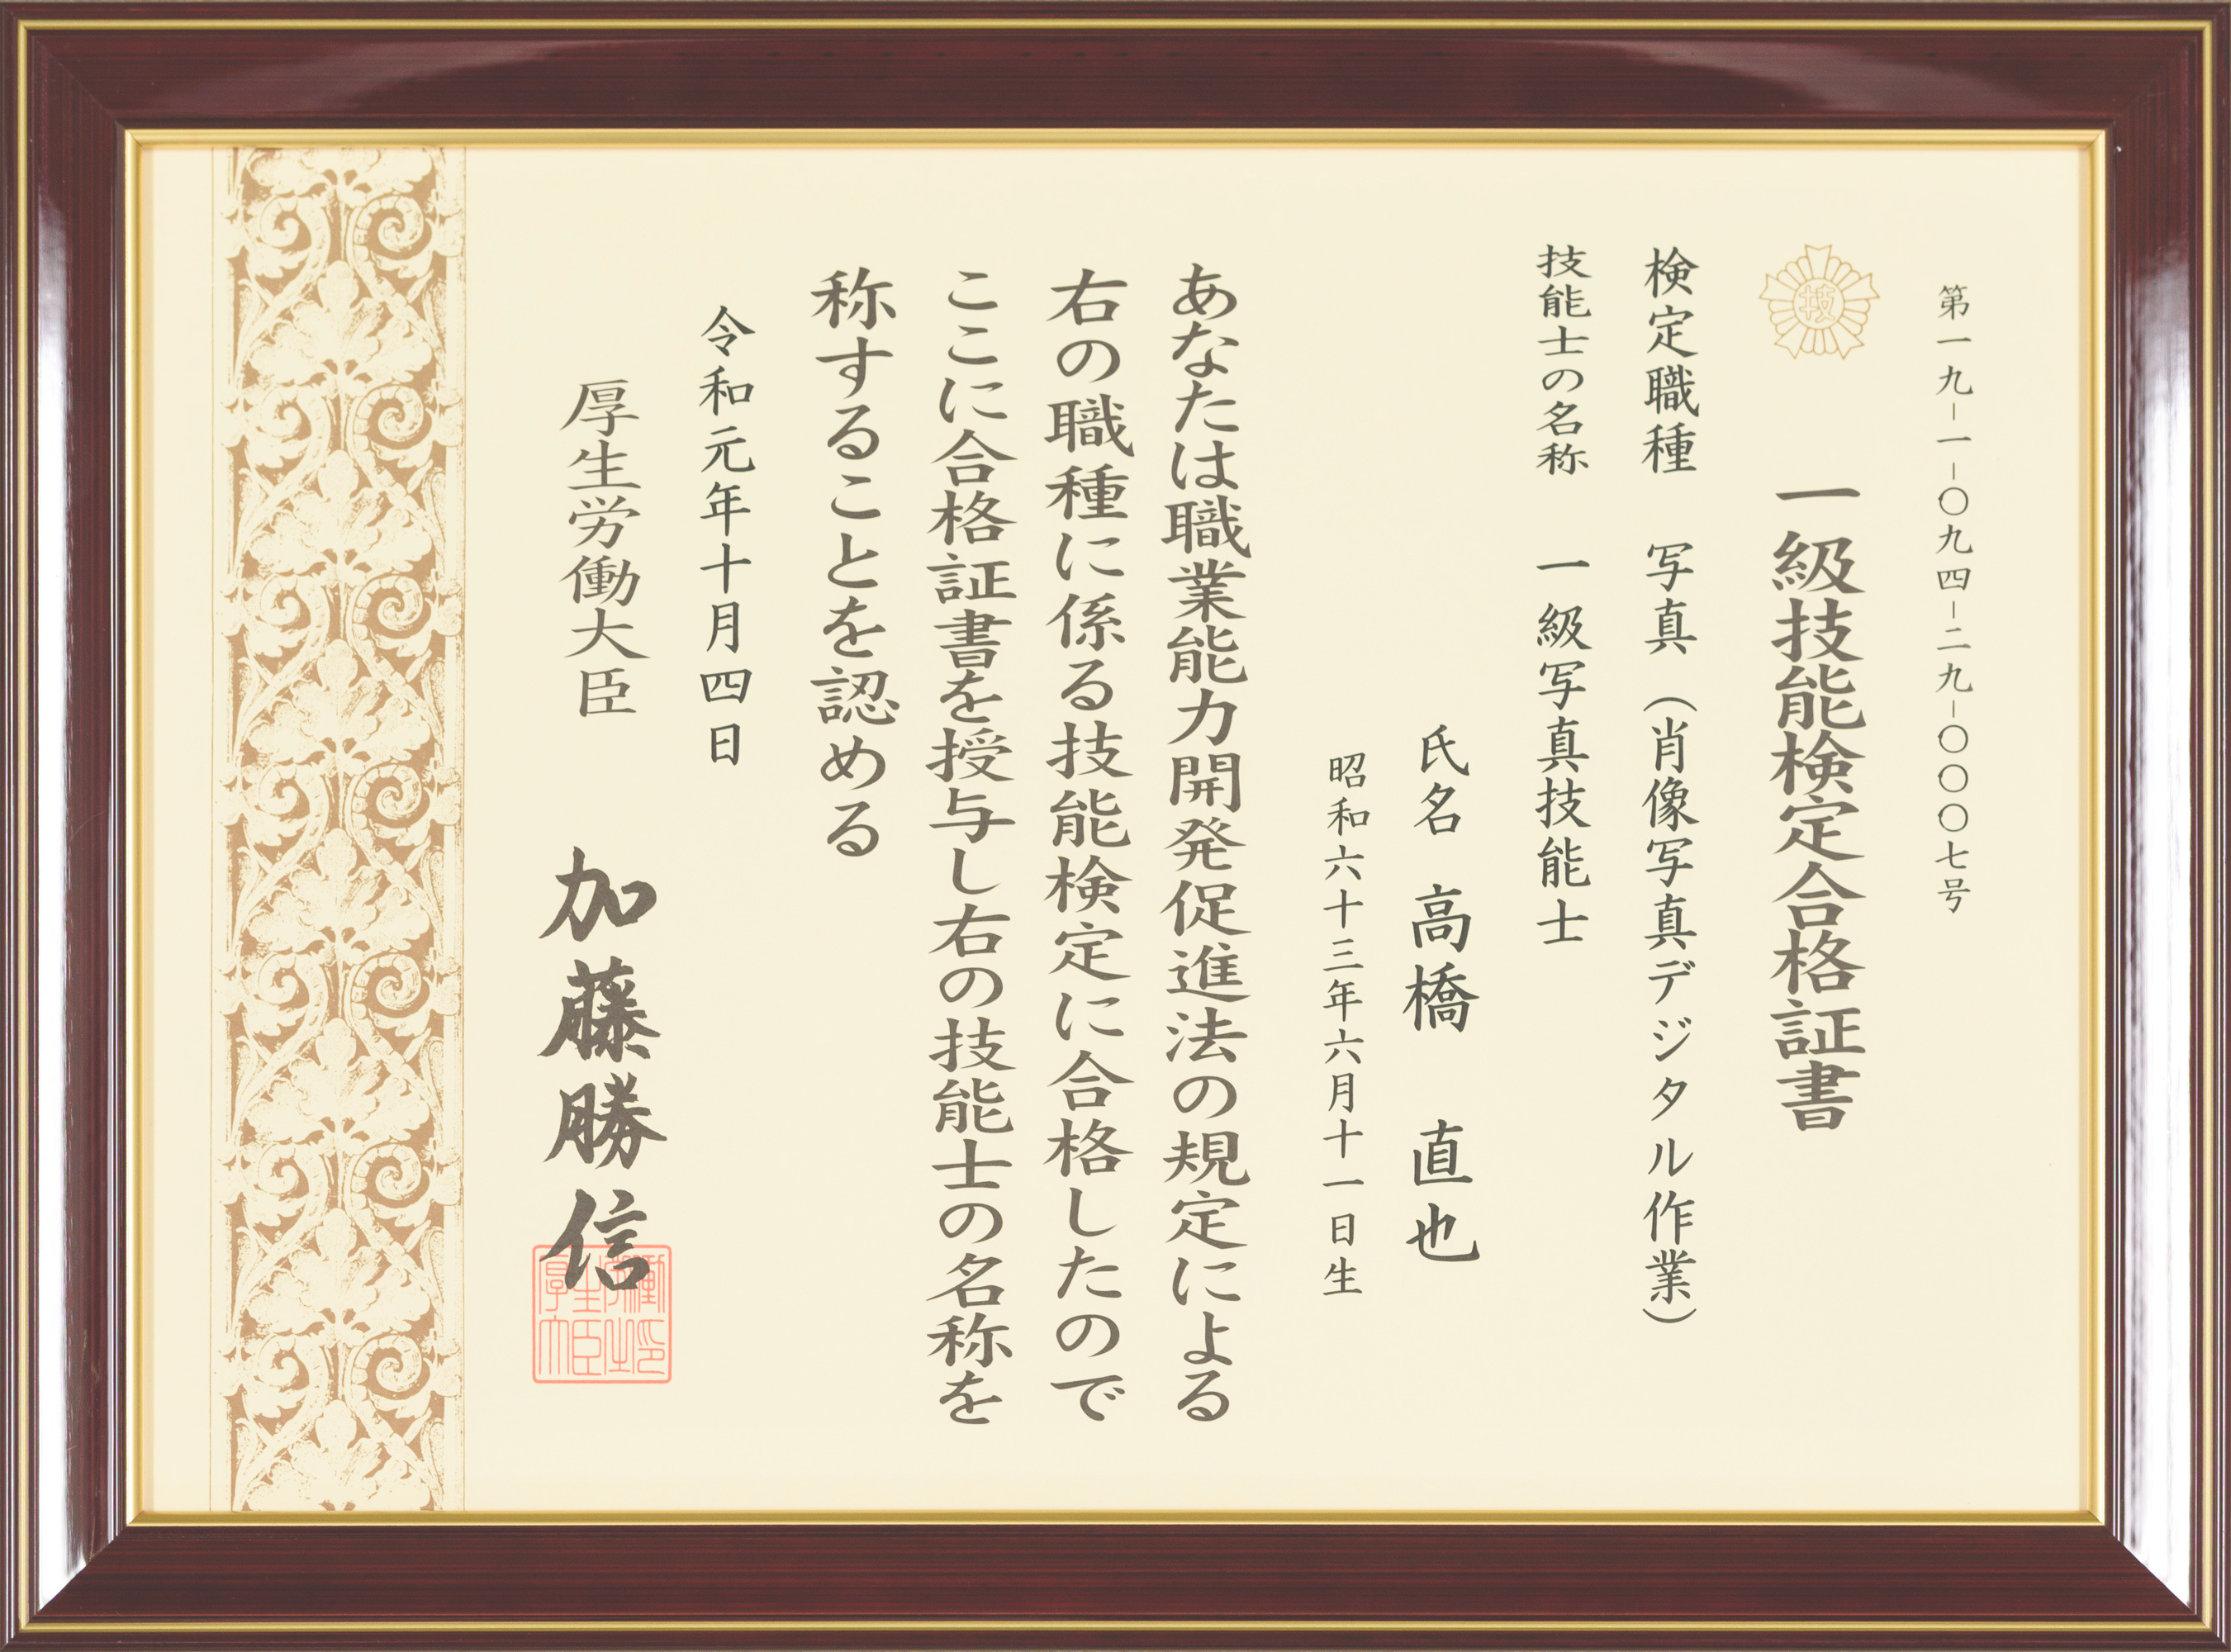 第一九－一－〇九四－二九－〇〇〇七号
技
一級技能検定合格証書
検定職種　写真（肖像写真デジタル作業）
技能士の名称　一級写真技能士
氏名　高橋　直也
昭和六十三年六月十一日生
あなたは職業能力開発促進法の規定による
右の職種に係る技能検定に合格したので
ここに合格証書を授与し右の技能士の名称を
称することを認める
令和元年十月四日
厚生労働大臣　加藤勝信